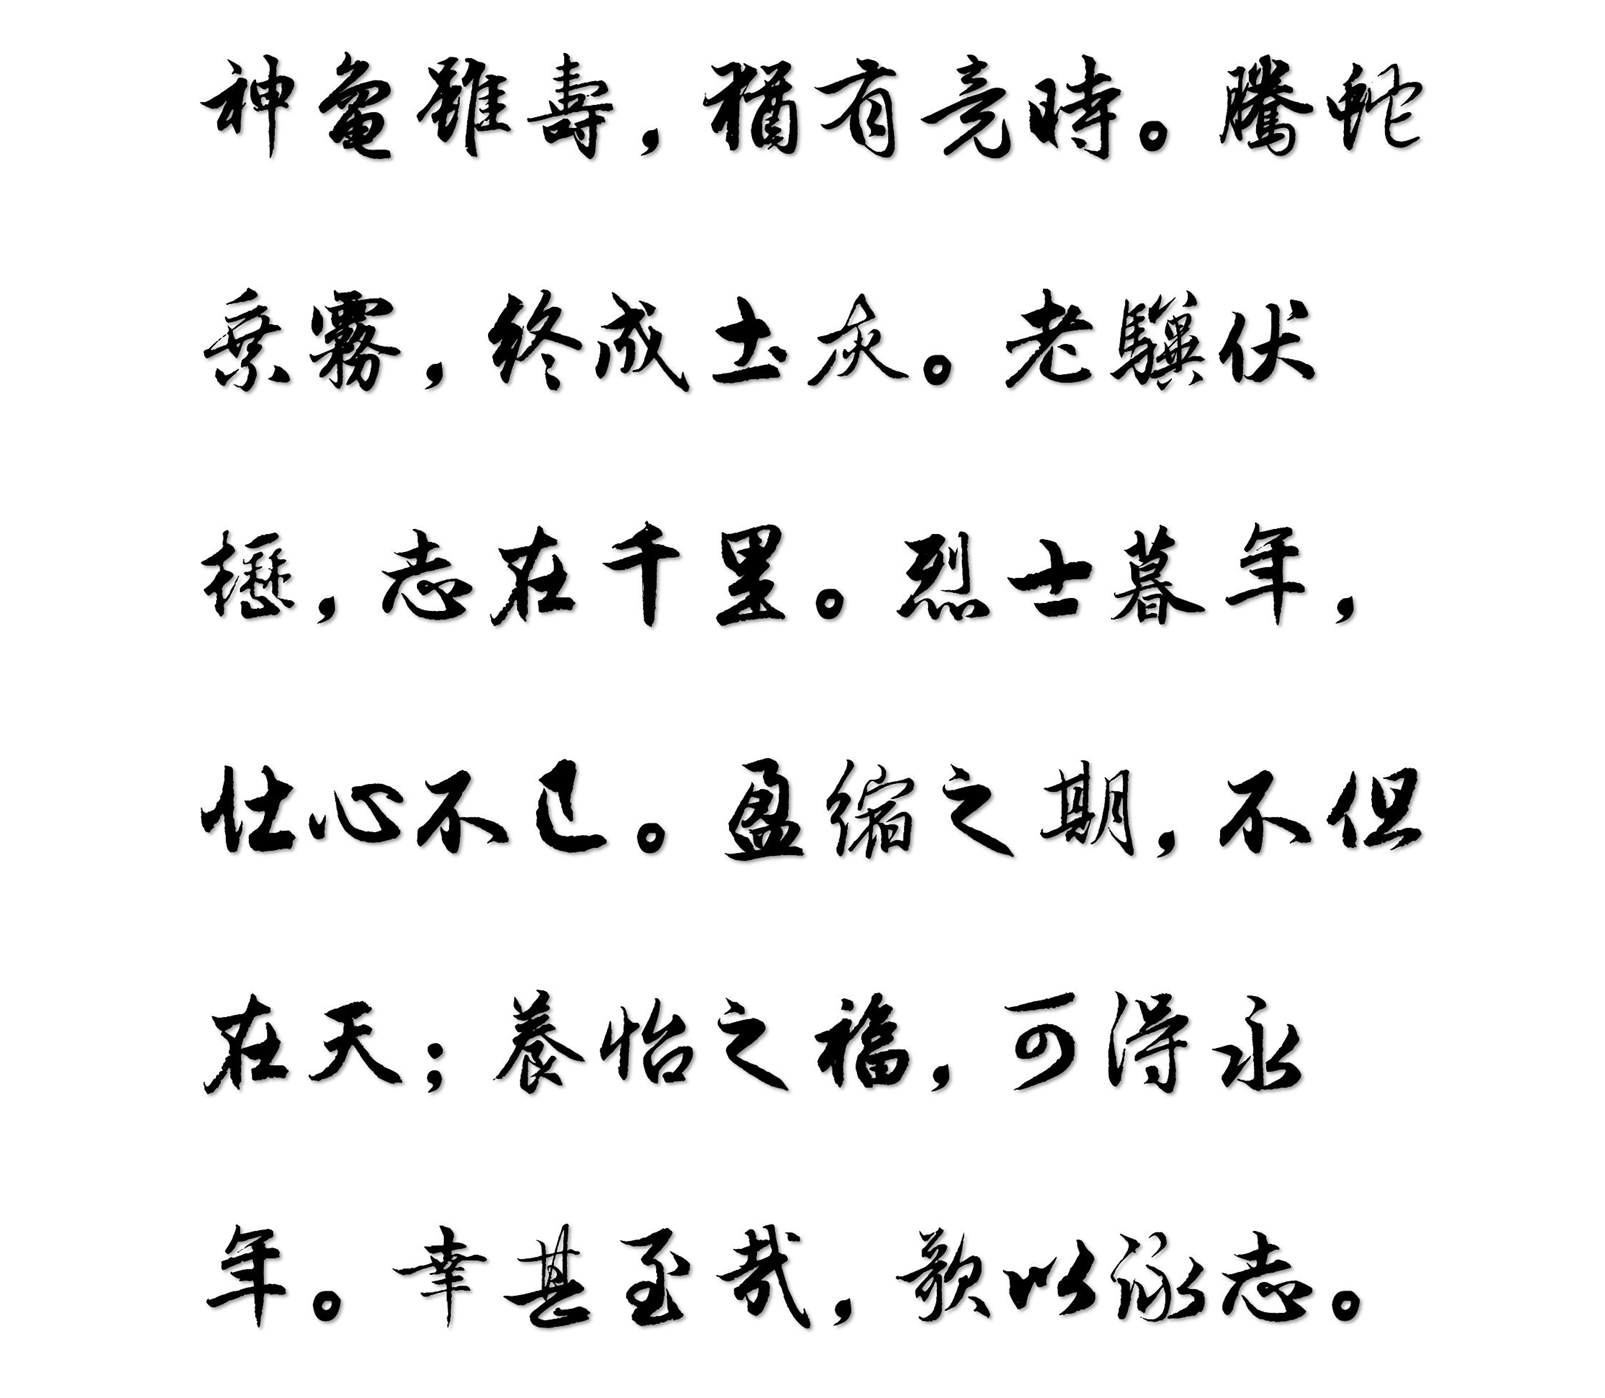 神龜雖壽，猶有竟時。騰蛇
乘霧，終成土灰。老驥伏
櫪，志在千里。烈士暮年，
壯心不已。盈縮之期，不但
在天；養怡之福，可得永
年。幸甚至哉，歌以詠志。